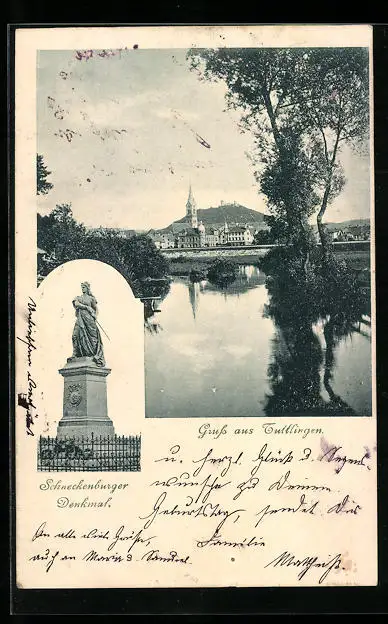 Gruß aus Tuttlingen.
Schneckenburger
Denkmal.
u. herzl. Glück- & Segens-
wünsche zu Deinem
Geburtstag, sendet Dir
Familie
An alle viele Grüße,
auch an Maria &